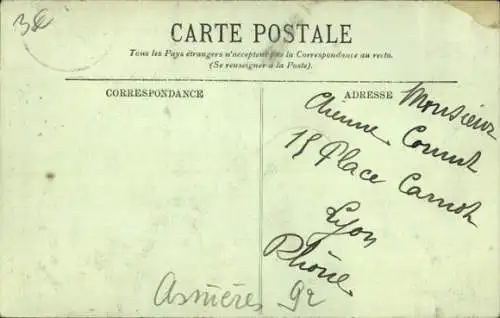 38
CARTE POSTALE
Tous les Pays étrangers n'acceptent pas la Correspondance au recto.
(Se renseigner à la Poste).
CORRESPONDANCE
ADRESSE
Monsieur
15 Place Carnot
Lyon
Rhône
Asnières 92